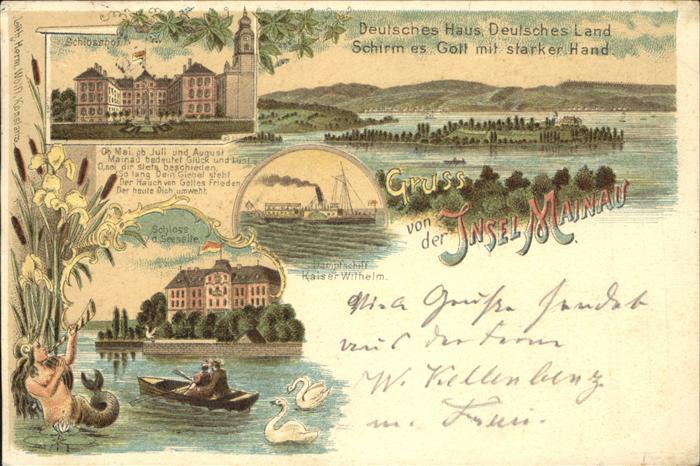 Schlosshof
Deutsches Haus, Deutsches Land
Schirm es, Gott mit starker Hand.
Lith. Herm. Wolf, Konstanz
Ob Mai, ob Juli und August
Mainau bedeutet Glück und Lust
O, sei dir stets beschieden,
So lang Dein Giebel steht
Der Hauch von Gottes Frieden
Der heute Dich umweht.
Gruss
von der Insel Mainau.
Schloss
v.d. Seeseite.
Dampfschiff
Kaiser Wilhelm.
Viele Grüße sendet
aus der Ferne
W. Kellenbenz
u. Frau.